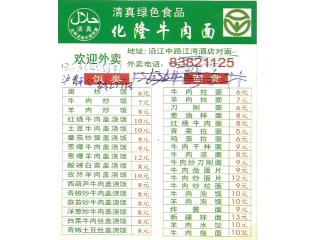 清真绿色食品
清真
化隆牛肉面
欢迎外卖
地址:沿江中路江湾酒店对面
外卖电话:83821125
饭类
面食
蛋炒饭 6元
牛肉炒饭 7元
羊肉炒饭 8元
红烧牛肉盖浇饭 8元
土豆牛肉盖浇饭 8元
番茄牛肉盖浇饭 8元
葱爆牛肉盖浇饭
葱爆羊肉盖浇饭 12元
酸辣白菜盖浇饭
孜然羊肉盖浇饭
西葫芦牛肉盖浇饭 8元
青椒牛肉盖浇饭 8元
蒜苔炒牛肉盖浇饭 8元
洋葱炒牛肉盖浇饭 8元
白菜牛肉丝盖浇饭 8元
青椒土豆丝盖浇饭 8元
牛肉拉面 6元
羊肉拉面
刀削面
葱油拌面
红烧牛肉面
青菜拉面 5元
鸡蛋拉面 6元
牛肉干拌面 9元
牛肉凉面 8元
牛肉炒刀削面 9元
牛肉烩面片 9元
牛肉炒面片 12元
牛肉炒拉面 9元
羊肉炒拉面 10元
炸酱面 9元
新疆拌面 13元
羊肉水饺
牛肉水饺